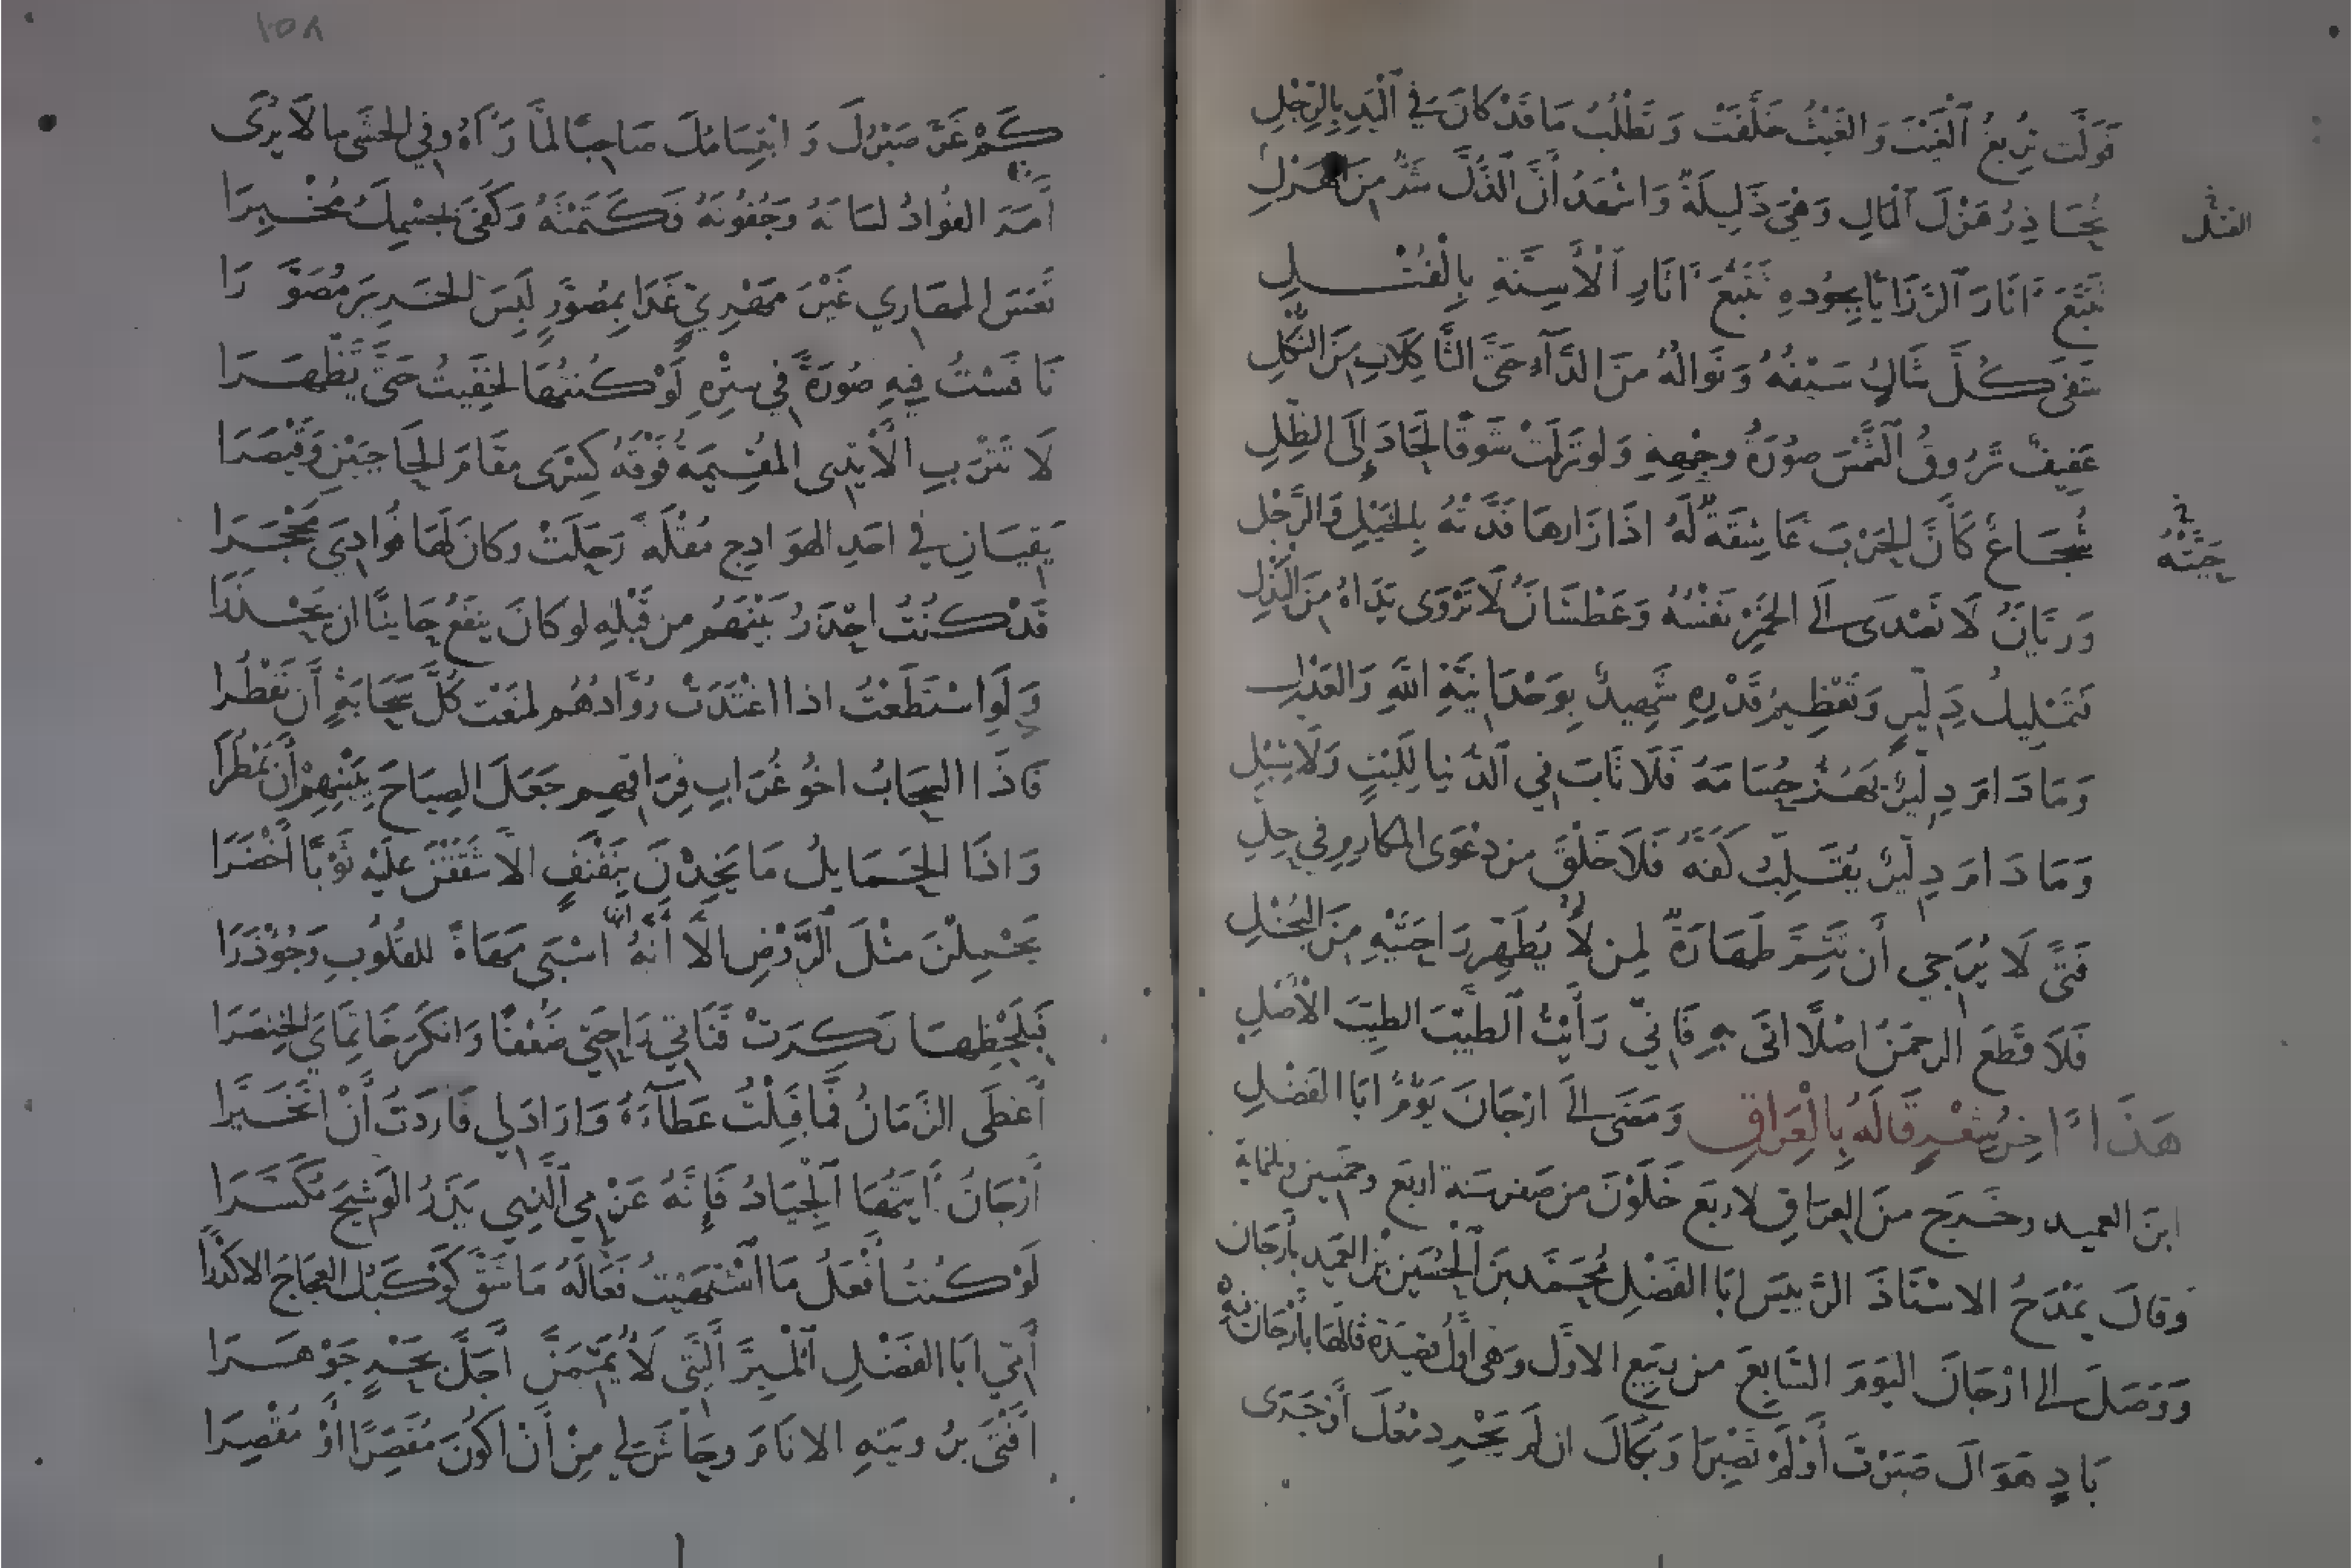 فَوَلَّت تُرِيغُ الْغَيْثَ وَالغَيْثُ خَلَّفَتْ وَتَطْلُبُ مَا قَدْ كَانَ فِي الْيَدِ بِالرِّجْلِ
تُحَاذِرُ هَزْلَ الْمَالِ وَهْيَ ذَلِيلَةٌ وَاشْهَدُ أَنَّ الذُّلَّ شَرٌّ مِنَ الهَزْلِ
القتل
تَتَبَّعَ آثَارَ الرَّزَايَا بِجُودِهِ تَتَبُّعَ آثَارِ الْأَسِنَّةِ بِالْفُتْلِ
شَفَى كُلَّ شَاكٍ سَيْفُهُ وَنَوَالُهُ مِنَ الدَّآءِ حَتَّى الثَّاكِلَاتِ مِنَ الثُّكْلِ
عَفِيفٌ تَرُوقُ الشَّمْسَ صُورَةُ وَجْهِهِ وَلَو نَزَلَتْ شَوْقًا لَحَادَ إِلَى الظِّلِّ
شُجَاعٌ كَأَنَّ الحَرْبَ عَاشِقَةٌ لَهُ اذَا زَارهَا فَدَّتْهُ بِالخَيْلِ وَالرَّجْلِ
وَرَيَّانُ لَا تَصْدَى الَى الخَمْرِ نَفْسُهُ وَعَطْشَانُ لَا تَرْوَى يَدَاهُ مِنَ البَذْلِ
فَتَمْلِيكُ دِلَّيْرٍ وَتَعْظِيمُ قَدْرِهِ شَهِيدٌ بِوَحْدَانِيَّةِ اللهِ وَالعَدْلِ
وَمَا دَامَ دِلَّيْرٌ يَهُزُّ حُسَامَهُ فَلَا نَابَ فِي الدُّنْيا لِلَيْثٍ وَلَا شِبْلِ
وَمَا دَامَ دِلَّيْرٌ يُقَلِّبُ كَفَّهُ فَلَا خَلْقَ مِن دَعْوَى المكَارِمِ فِي حِلِّ
فَتًى لَا يُرَجِّي أَن تَتِمَّ طَهَارَةٌ لِمَن لَا يُطَهِّر رَاحَتَيْهِ مِنَ البُخْلِ
فَلَا قَطَعَ الرحمَنُ اصْلًا اتَى بِهِ فَانِّي رَأَيْتُ الطَّيِّبَ الطيِّبَ الأَصْلِ
هَذَا آخِرُ شِعْرٍ قَالَهُ بِالْعِرَاقِ وَمَضَى الَى ارَّجَانَ يَؤُمُّ ابَا الفَضْلِ
ابنَ العميد وخَرَج منَ العِرَاقِ لاربَع خَلَوْنَ من صَفَر سَنة اربَع وخمْسِين وثلثماية
وَقَالَ يَمْدَحُ الاسْتَاذَ الرَّئِيسَ ابَا الفَضْلِ مُحَمَّد بنَ الْحُسَينِ بْنِ العَمِيد بأَرَّجَان
وَوَصَلَ الى ارَّجَانَ اليَوْمَ السَّابِعَ من رَبِيع الاوَّل وَهي اوَّلُ قصِيدَةٍ قَالَهَا بأَرَّجَانَ فيه
بَادٍ هَوَاكَ صَبَرْتَ أَوْ لَمْ تَصْبِرَا وَبُكَاكَ ان لَمْ يَجْرِ دمْعُكَ أَوْ جَرَى
جُثَّتُهُ
١٥٨
كَمْ غَرَّ صَبْرُكَ وَابْتِسَامُكَ صَاحِبًا لمَّا رَآهُ وَفِي الحَشَى مَا لَا يُرَى
أَمَرَ الفُؤَادُ لسَانَهُ وَجُفُونَهُ فَكَتَمْنَهُ وَكَفَى بجِسْمِكَ مُخْبِرَا
تَعِسَ المهَارِي غَيْرَ مَهْرِيٍّ غَدَا بِمُصَوَّرٍ لَبِسَ الحَرِيرَ مُصَوَّرَا
نَافَسْتُ فِيهِ صُورَةً فِي سِتْرِهِ لَوْ كُنتُهَا لخَفِيتُ حَتَّى يَظْهَرَا
لَا تَتْرَبِ الأَيْدِي المُقِيمَةُ فَوْقَهُ كِسْرَى مقَامَ الحَاجِبَيْنِ وَقَيْصَرَا
يَقِيَانِ فِي احَدِ الهَوَادِجِ مُقْلَةً رَحَلَتْ وَكانَ لَهَا فُوَادِي مَحْجَرَا
قَدْ كُنْتُ احْذَرُ بَيْنَهُم مِن قَبْلِهِ لَو كَانَ يَنفَعُ حَاينًا ان يَحْذَرَا
وَلَوِ اسْتَطَعْتُ اذا اغْتَدَتْ رُوَّادُهُم لمَنَعْت كُلَّ سَحَابَةٍ أَن تَقْطُرَا
فَاذَا السَّحَابُ اخُو غُرَابِ فِرَاقِهِم جَعَلَ الصِيَاحَ بِبَيْنِهِمْ أَن يَمْطُرَا
وَاذَا الحَمَايِلُ مَا يَخِدْنَ بِنَفْنَفٍ الَّا شَقَقْنَ عَلَيْهِ ثَوْبًا أَخْضَرَا
يَحْمِلْنَ مثْلَ الرَّوْضِ الَّا أَنَّهُ اسْبَى مَهَاةً لِلقُلُوبِ وَجُؤْذَرَا
فَبِلَحْظِهَا نَكِرَتْ قَنَاتِي رَاحَتِي ضُعْفًا وَانكَرَ خَاتِمَايَ الخِنْصَرَا
أَعْطَى الزَّمَانُ فَمَا قَبِلْتُ عَطَآءَهُ وَارَادَ لِي فَارَدْتُ أَنْ اتَخَيَّرَا
أَرَجَانَ أَيَّتُهَا الْجِيَادُ فَإِنَّهُ عَزْمِي الَّذِي يَذَرُ الوَشِيجَ مُكَسَّرَا
لَوْ كُنتُ أَفْعَلُ مَا اشْتَهَيْتُ فَعَالَهُ مَا شَقَّ كَوْكَبُكِ العَجَاجَ الاكْدَرَا
أُمِّي ابَا الفَضْلِ الْمُبِرَّ أَلِيَّتِي لَأُيَمِّمَنَّ أَجَلَّ بَحْرٍ جَوْهَرَا
افْتَى بِرُويَتِهِ الانَامَ وحَاشَ لي مِنْ أَنْ اكُونَ مُقَصِّرًا أَوْ مُقْصِرَا